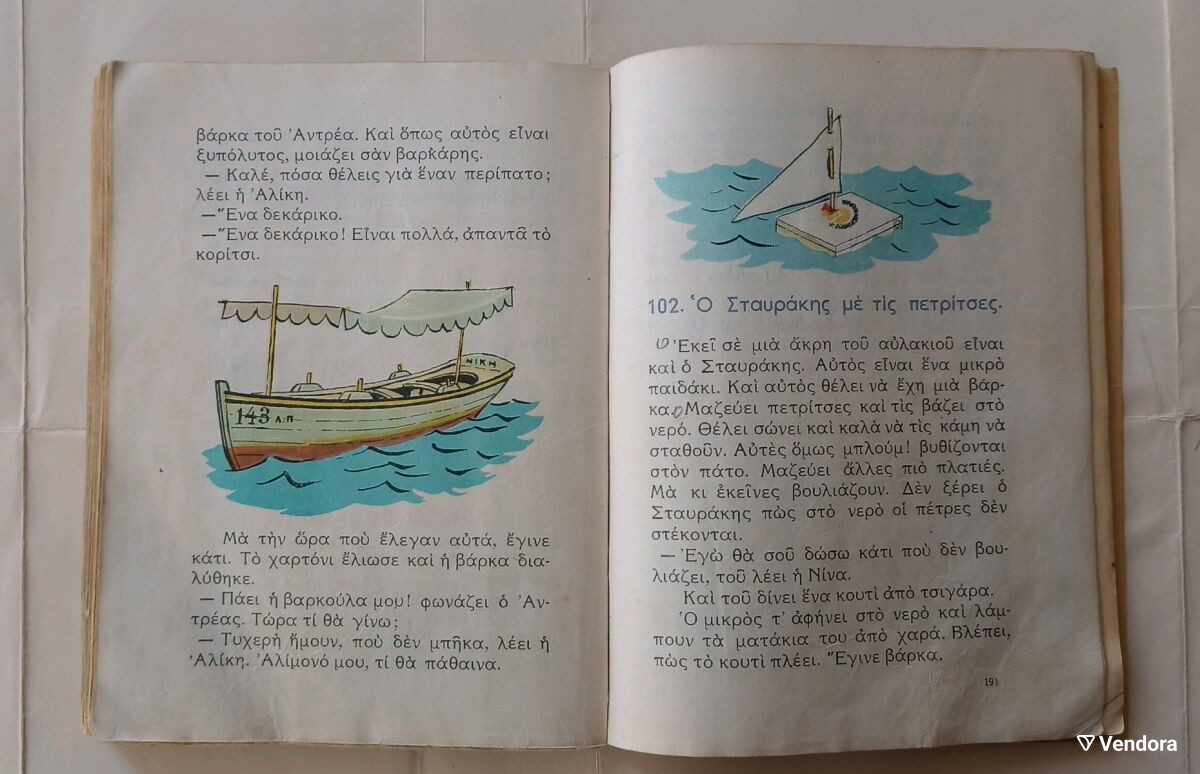 βάρκα τοῦ Ἀντρέα. Καὶ ὅπως αὐτὸς εἶναι
ξυπόλυτος, μοιάζει σὰν βαρκάρης.
— Καλέ, πόσα θέλεις γιὰ ἕναν περίπατο;
λέει ἡ Ἀλίκη.
— Ἕνα δεκάρικο.
— Ἕνα δεκάρικο! Εἶναι πολλά, ἀπαντᾶ τὸ
κορίτσι.
ΝΙΚΗ
143 Λ.Π
Μὰ τὴν ὥρα ποὺ ἔλεγαν αὐτά, ἔγινε
κάτι. Τὸ χαρτόνι ἔλιωσε καὶ ἡ βάρκα δια-
λύθηκε.
— Πάει ἡ βαρκούλα μου! φωνάζει ὁ Ἀν-
τρέας. Τώρα τί θὰ γίνω;
— Τυχερὴ ἤμουν, ποὺ δὲν μπῆκα, λέει ἡ
Ἀλίκη. Ἀλίμονό μου, τί θὰ πάθαινα.
102. Ὁ Σταυράκης μὲ τὶς πετρίτσες.
Ἐκεῖ σὲ μιὰ ἄκρη τοῦ αὐλακιοῦ εἶναι
καὶ ὁ Σταυράκης. Αὐτὸς εἶναι ἕνα μικρὸ
παιδάκι. Καὶ αὐτὸς θέλει νὰ ἔχη μιὰ βάρ-
κα. Μαζεύει πετρίτσες καὶ τὶς βάζει στὸ
νερό. Θέλει σώνει καὶ καλὰ νὰ τὶς κάμη νὰ
σταθοῦν. Αὐτὲς ὅμως μπλούμ! βυθίζονται
στὸν πάτο. Μαζεύει ἄλλες πιὸ πλατιές.
Μὰ κι ἐκεῖνες βουλιάζουν. Δὲν ξέρει ὁ
Σταυράκης πὼς στὸ νερὸ οἱ πέτρες δὲν
στέκονται.
— Ἐγὼ θὰ σοῦ δώσω κάτι ποὺ δὲν βου-
λιάζει, τοῦ λέει ἡ Νίνα.
Καὶ τοῦ δίνει ἕνα κουτὶ ἀπὸ τσιγάρα.
Ὁ μικρὸς τ' ἀφήνει στὸ νερὸ καὶ λάμ-
πουν τὰ ματάκια του ἀπὸ χαρά. Βλέπει,
πὼς τὸ κουτὶ πλέει. Ἔγινε βάρκα.
191
Vendora